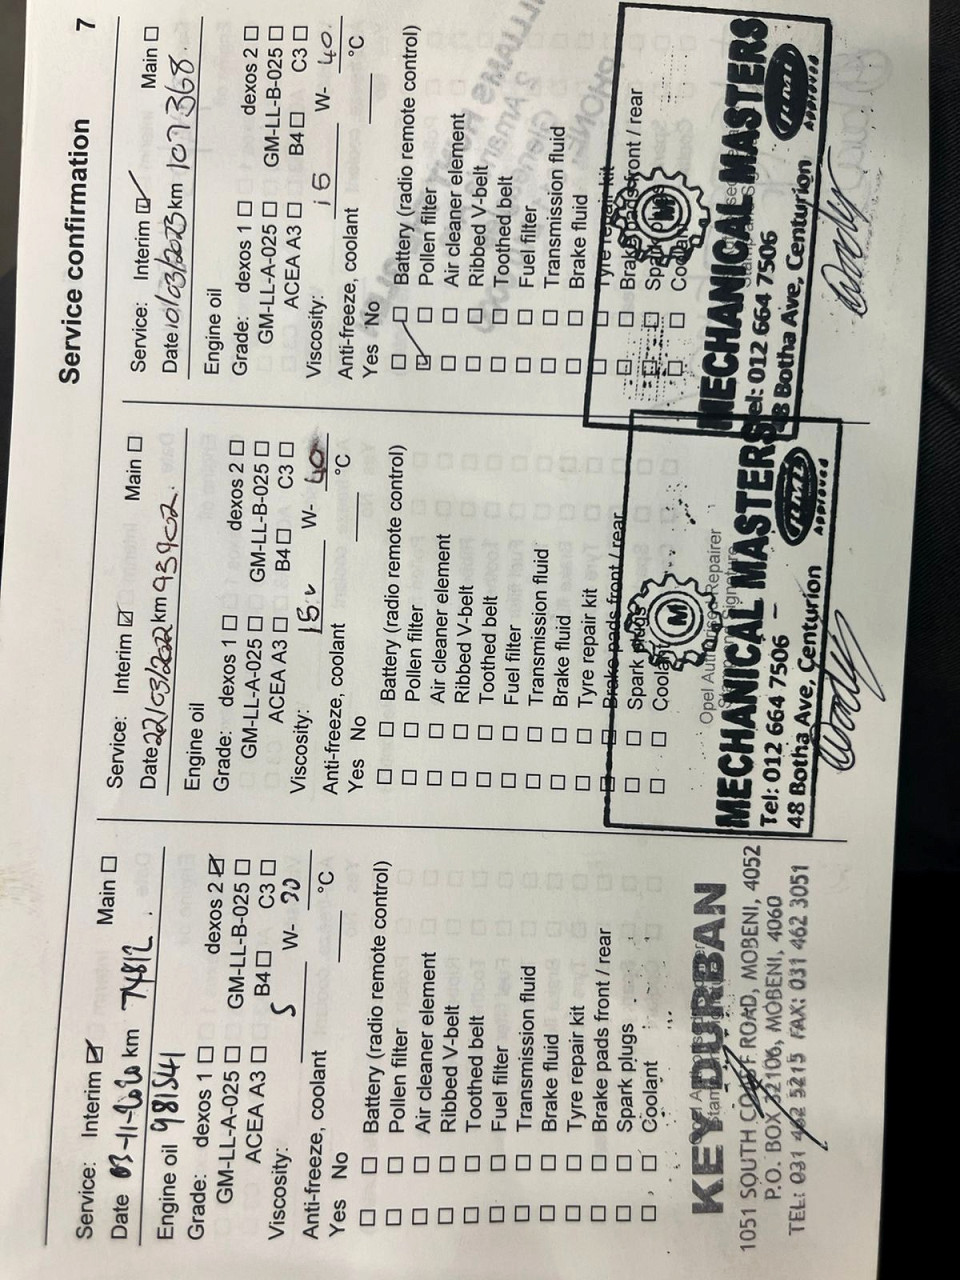 Service confirmation 7
Service: Interim ☑ Main ☐
Date 03-11-2020 km 74812
Engine oil 981541
Grade: dexos 1 ☐ dexos 2 ☑
GM-LL-A-025 ☐ GM-LL-B-025 ☐
ACEA A3 ☐ B4 ☐ C3 ☐
Viscosity: 5 W- 30
Anti-freeze, coolant °C
Yes No
☐ ☐ Battery (radio remote control)
☐ ☐ Pollen filter
☐ ☐ Air cleaner element
☐ ☐ Ribbed V-belt
☐ ☐ Toothed belt
☐ ☐ Fuel filter
☐ ☐ Transmission fluid
☐ ☐ Brake fluid
☐ ☐ Tyre repair kit
☐ ☐ Brake pads front / rear
☐ ☐ Spark plugs
☐ ☐ Coolant
KEY DURBAN
1051 SOUTH COAST ROAD, MOBENI, 4052
P.O. BOX 32106, MOBENI, 4060
TEL: 031 462 5215 FAX: 031 462 3051
Service: Interim ☑ Main ☐
Date 22/03/2022 km 93902
Engine oil
Grade: dexos 1 ☐ dexos 2 ☐
GM-LL-A-025 ☐ GM-LL-B-025 ☐
ACEA A3 ☐ B4 ☐ C3 ☐
Viscosity: 15 W- 40
Anti-freeze, coolant °C
Yes No
☐ ☐ Battery (radio remote control)
☐ ☐ Pollen filter
☐ ☐ Air cleaner element
☐ ☐ Ribbed V-belt
☐ ☐ Toothed belt
☐ ☐ Fuel filter
☐ ☐ Transmission fluid
☐ ☐ Brake fluid
☐ ☐ Tyre repair kit
☐ ☐ Brake pads front / rear
☐ ☐ Spark plugs
☐ ☐ Coolant
M
Opel Authorised Repairer
MECHANICAL MASTERS
Tel: 012 664 7506
48 Botha Ave, Centurion
APPROVED
Service: Interim ☑ Main ☐
Date 10/03/2023 km 107368
Engine oil
Grade: dexos 1 ☐ dexos 2 ☐
GM-LL-A-025 ☐ GM-LL-B-025 ☐
ACEA A3 ☐ B4 ☐ C3 ☐
Viscosity: 15 W- 40
Anti-freeze, coolant °C
Yes No
☐ ☐ Battery (radio remote control)
☑ ☐ Pollen filter
☐ ☐ Air cleaner element
☐ ☐ Ribbed V-belt
☐ ☐ Toothed belt
☐ ☐ Fuel filter
☐ ☐ Transmission fluid
☐ ☐ Brake fluid
☐ ☐ Tyre repair kit
☐ ☐ Brake pads front / rear
☐ ☐ Spark plugs
☐ ☐ Coolant
M
MECHANICAL MASTERS
Tel: 012 664 7506
48 Botha Ave, Centurion
APPROVED